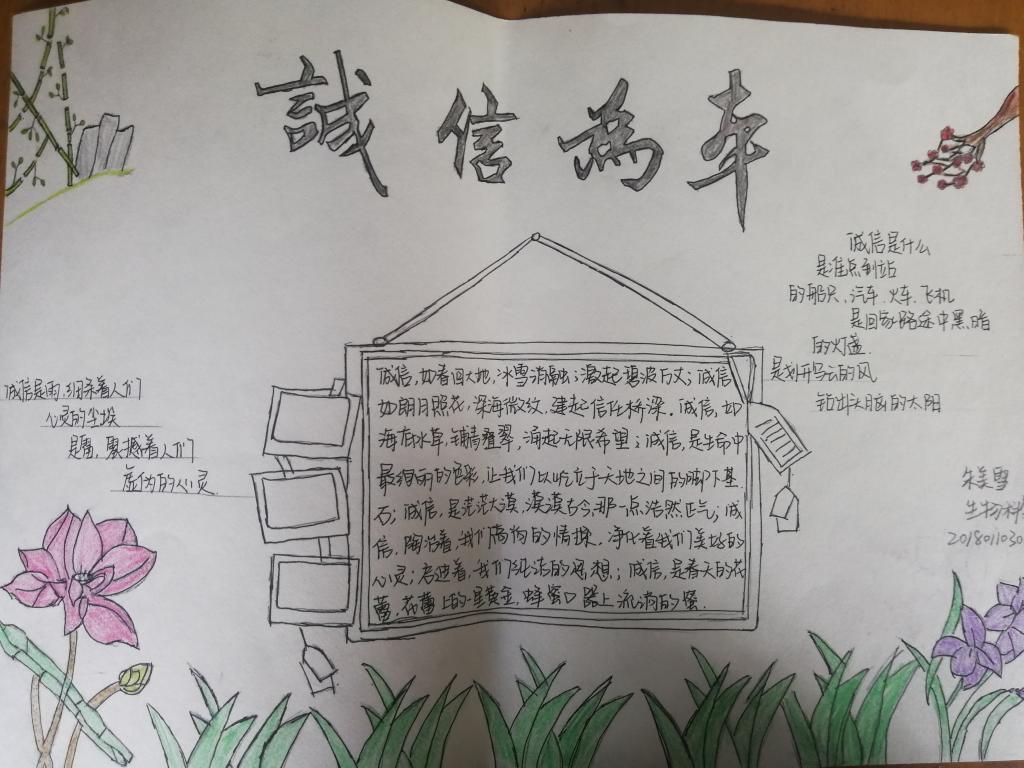 誠信為本
诚信是什么
是准点到站
的船只、汽车、火车、飞机
是回家路途中黑暗
的灯盏
是划开乌云的风
钻出头脑的太阳
诚信是雨，细涤着人们
心灵的尘埃
是雷，震撼着人们
虚伪的心灵
诚信，如春回大地，冰雪消融；激起碧波万丈；诚信
如朗月照花，深海微纹，建起信任桥梁。诚信，如
海底水草，铺青叠翠，涌起无限希望；诚信，是生命中
最绚丽的色彩，让我们以屹立于天地之间的脚下基
石；诚信，是茫茫大漠，漠漠古今，那一点浩然正气；诚
信，陶冶着，我们高尚的情操，净化着我们美好的
心灵；启迪着，我们纯洁的思想；诚信，是春天的花
蕾，花蕾上的一星黄金，蜂蜜口器上流淌的蜜．
朱美雪
生物科
2018011030